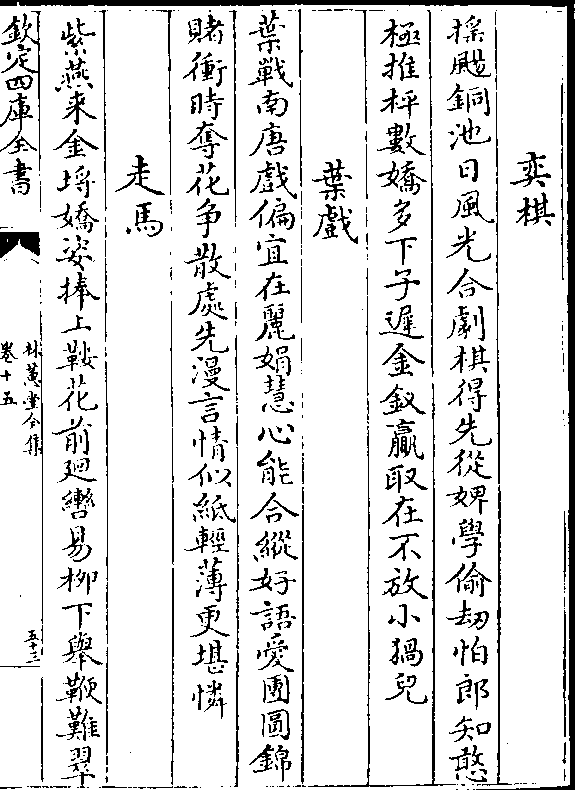 奕棋
採颺銅池日風光合劇棋得先從婢學偷刼怕郎知憨
極推枰數嬌多下子遲金釵贏取在不放小猧兒
葉戲
葉戰南唐戲偏宜在麗娟慧心能合縱好語愛團圓錦
賭衝時奪花争散處先漫言情似紙輕薄更堪憐
走馬
紫燕来金埒嬌姿捧上鞍花前廻轡易柳下舉鞭難翠
欽定四庫全書
林蕙堂全集
卷十五
五十三